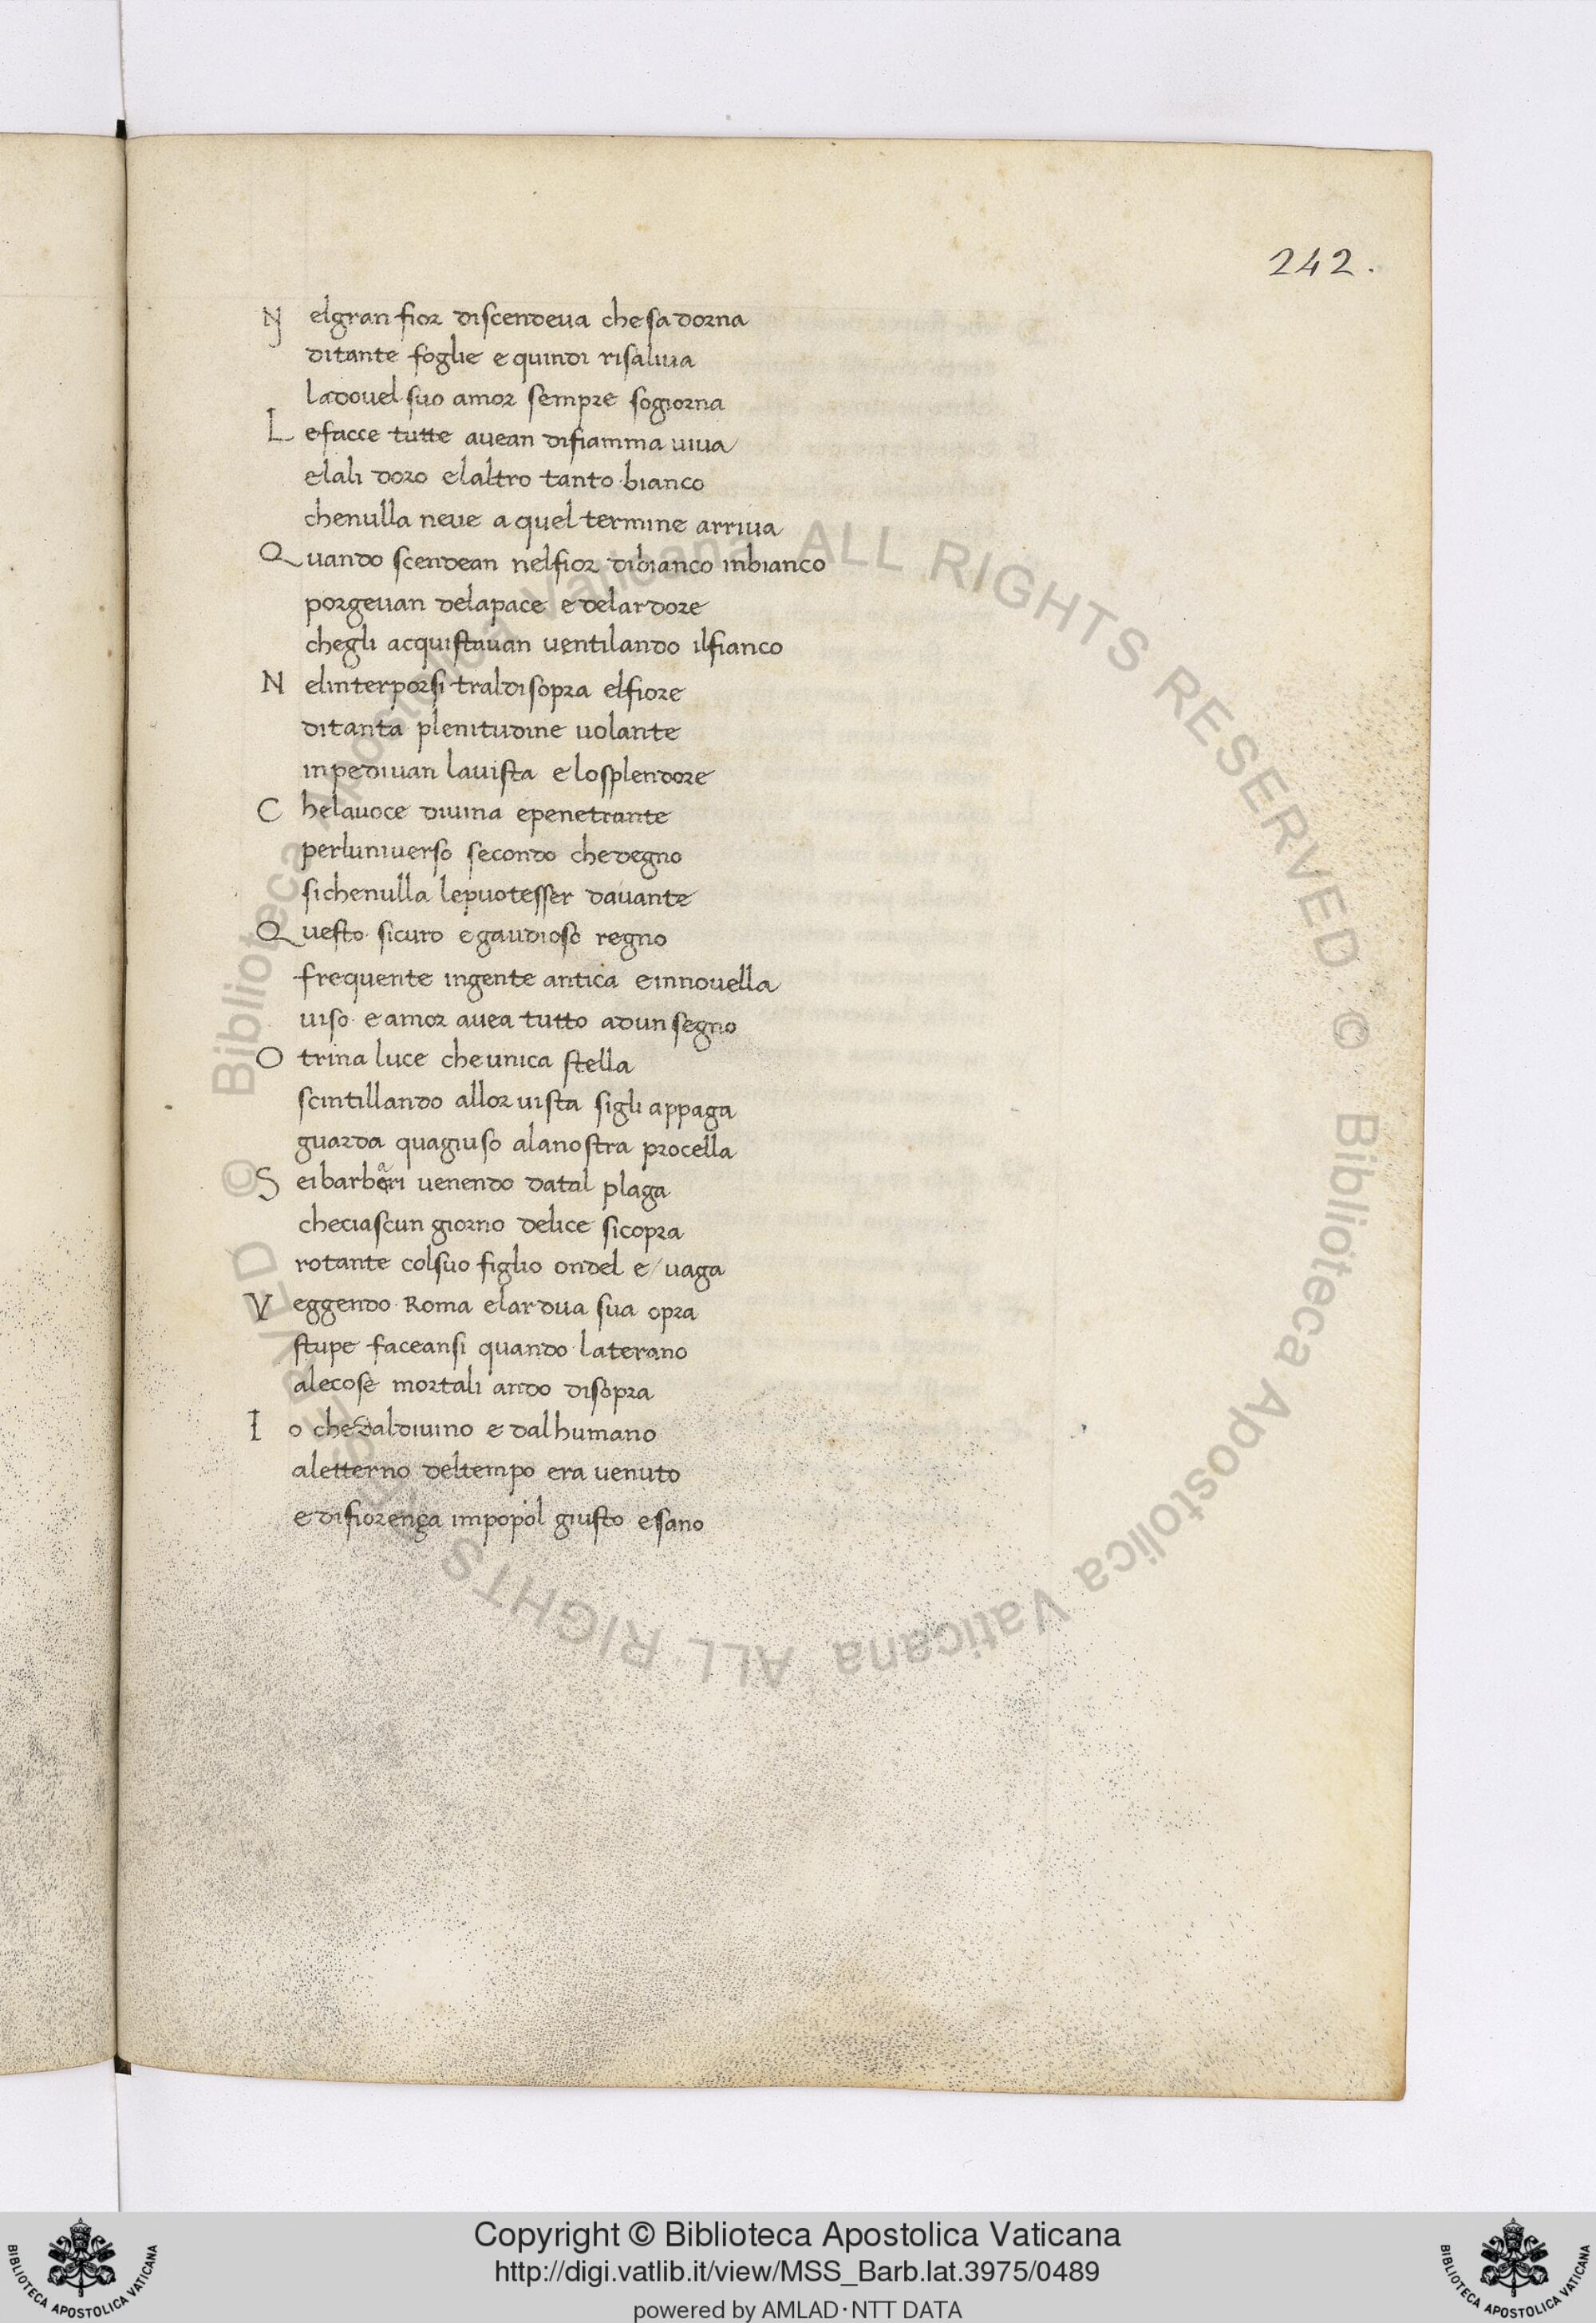 242.
N elgran fior discendeva che sadorna
ditante foglie e quindi risaliva
ladovel suo amor sempre sogiorna
L efacce tutte avean difiamma viva
elali doro elaltro tanto bianco
chenulla neve a quel termine arriva
Q uando scendean nelfior dibianco inbianco
porgevan delapace e delardore
chegli acquistavan ventilando ilfianco
N elinterporsi traldisopra elfiore
ditanta plenitudine volante
inpedivan lavista e losplendore
C helavoce divina epenetrante
perluniverso secondo chedegno
sichenulla lepuotesser davante
Q uesto sicuro egaudioso regno
frequente ingente antica einnovella
viso e amor avea tutto adun segno
O trina luce cheunica stella
scintillando allor vista sigli appaga
guarda quagiuso alanostra procella
S eibarbari venendo datal plaga
checiascun giorno delice sicopra
rotante colsuo figlio ondel e/ vaga
V eggendo Roma elardua sua opra
stupe faceansi quando laterano
alecose mortali ando disopra
I o chedaldivino e dalhumano
aletterno deltempo era venuto
e difiorença impopol giusto esano
Biblioteca Apostolica Vaticana ALL RIGHTS RESERVED © Biblioteca Apostolica Vaticana ALL RIGHTS RESERVED ©
Copyright © Biblioteca Apostolica Vaticana
http://digi.vatlib.it/view/MSS_Barb.lat.3975/0489
powered by AMLAD·NTT DATA
BIBLIOTECA APOSTOLICA VATICANA
BIBLIOTECA APOSTOLICA VATICANA